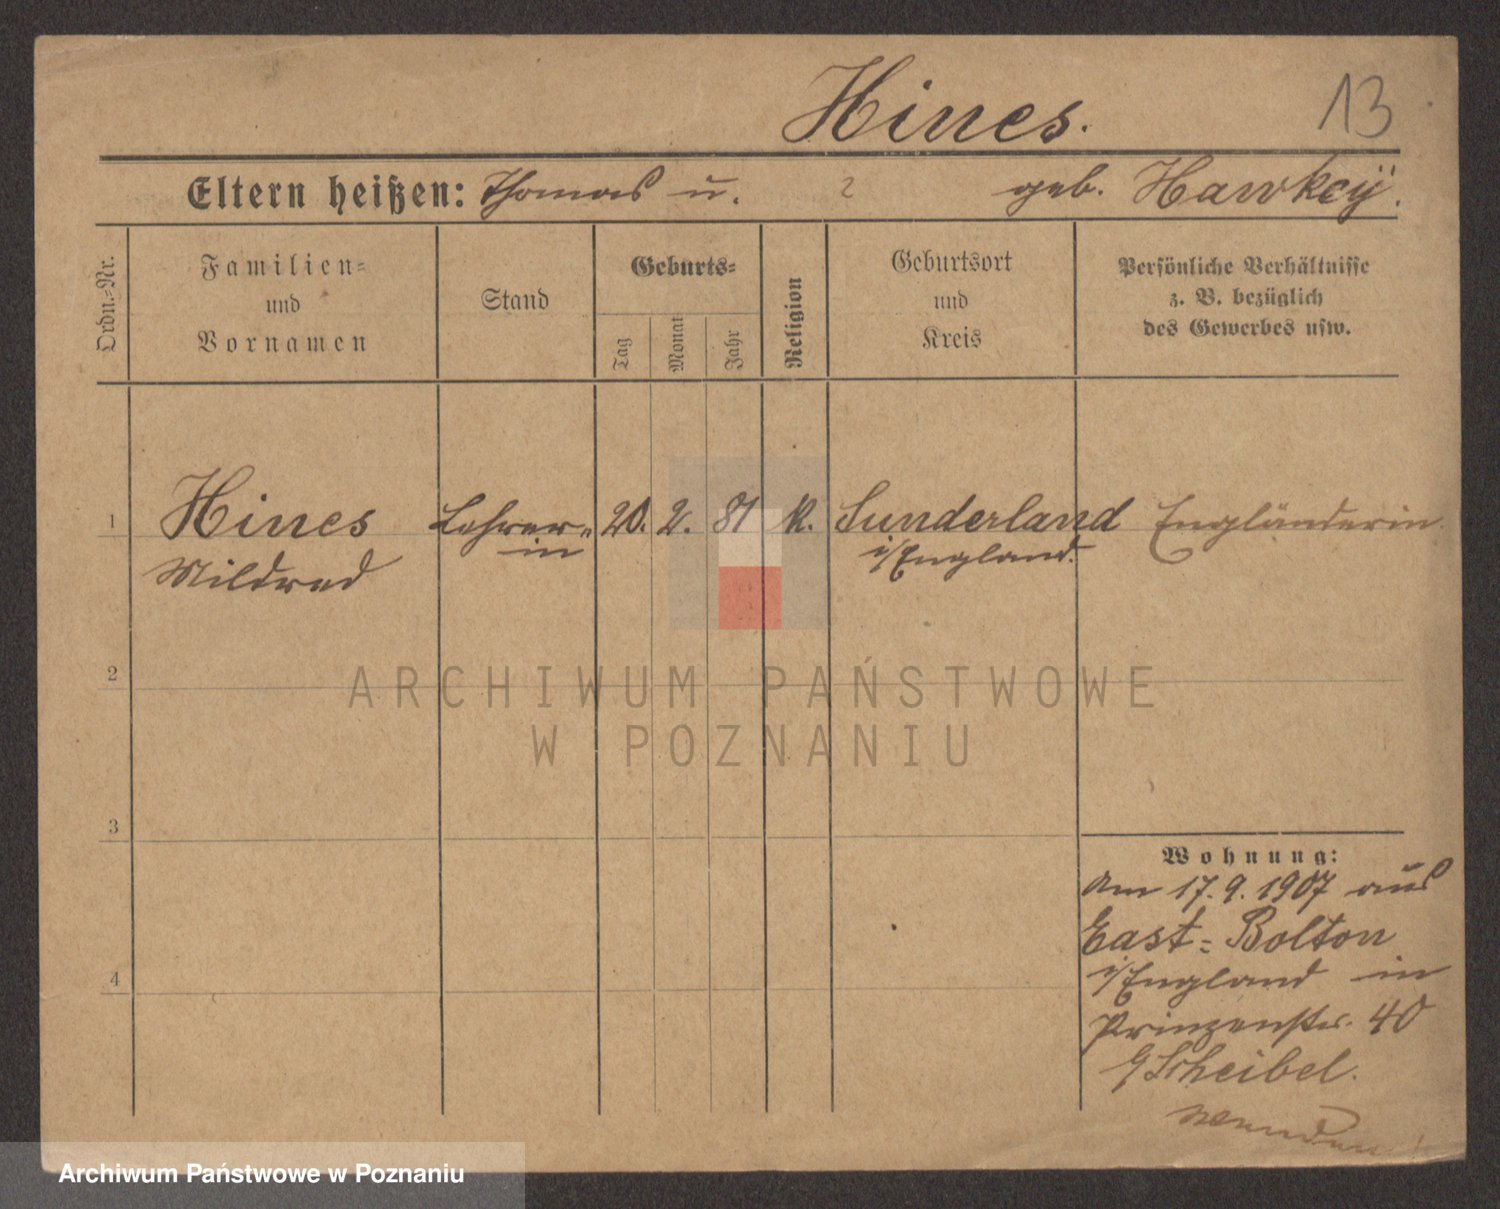 Hines.
13
Eltern heißen: Thomas u. ? geb. Hawkeÿ.
Ordn.=Nr.
Familien=
und
Vornamen
Stand
Geburts=
Tag
Monat
Jahr
Religion
Geburtsort
und
Kreis
Persönliche Verhältnisse
z. B. bezüglich
des Gewerbes usw.
1 Hines Lehrer= 20. 2. 81 k. Sunderland Engländerin
in i/England.
Mildred
2
ARCHIWUM PAŃSTWOWE
W POZNANIU
3
Wohnung:
Am 17.9.1907 aus
East=Bolton
i/England in
4
Prinzenstr. 40
b/Scheibel.
wenden!
Archiwum Państwowe w Poznaniu